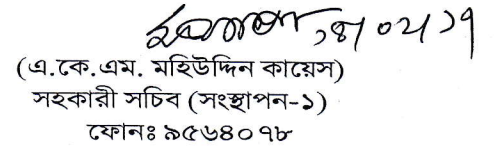 ১৪/০২/১৭
(এ.কে.এম. মহিউদ্দিন কায়েস)
সহকারী সচিব (সংস্থাপন-১)
ফোনঃ ৯৫৬৪০৭৮